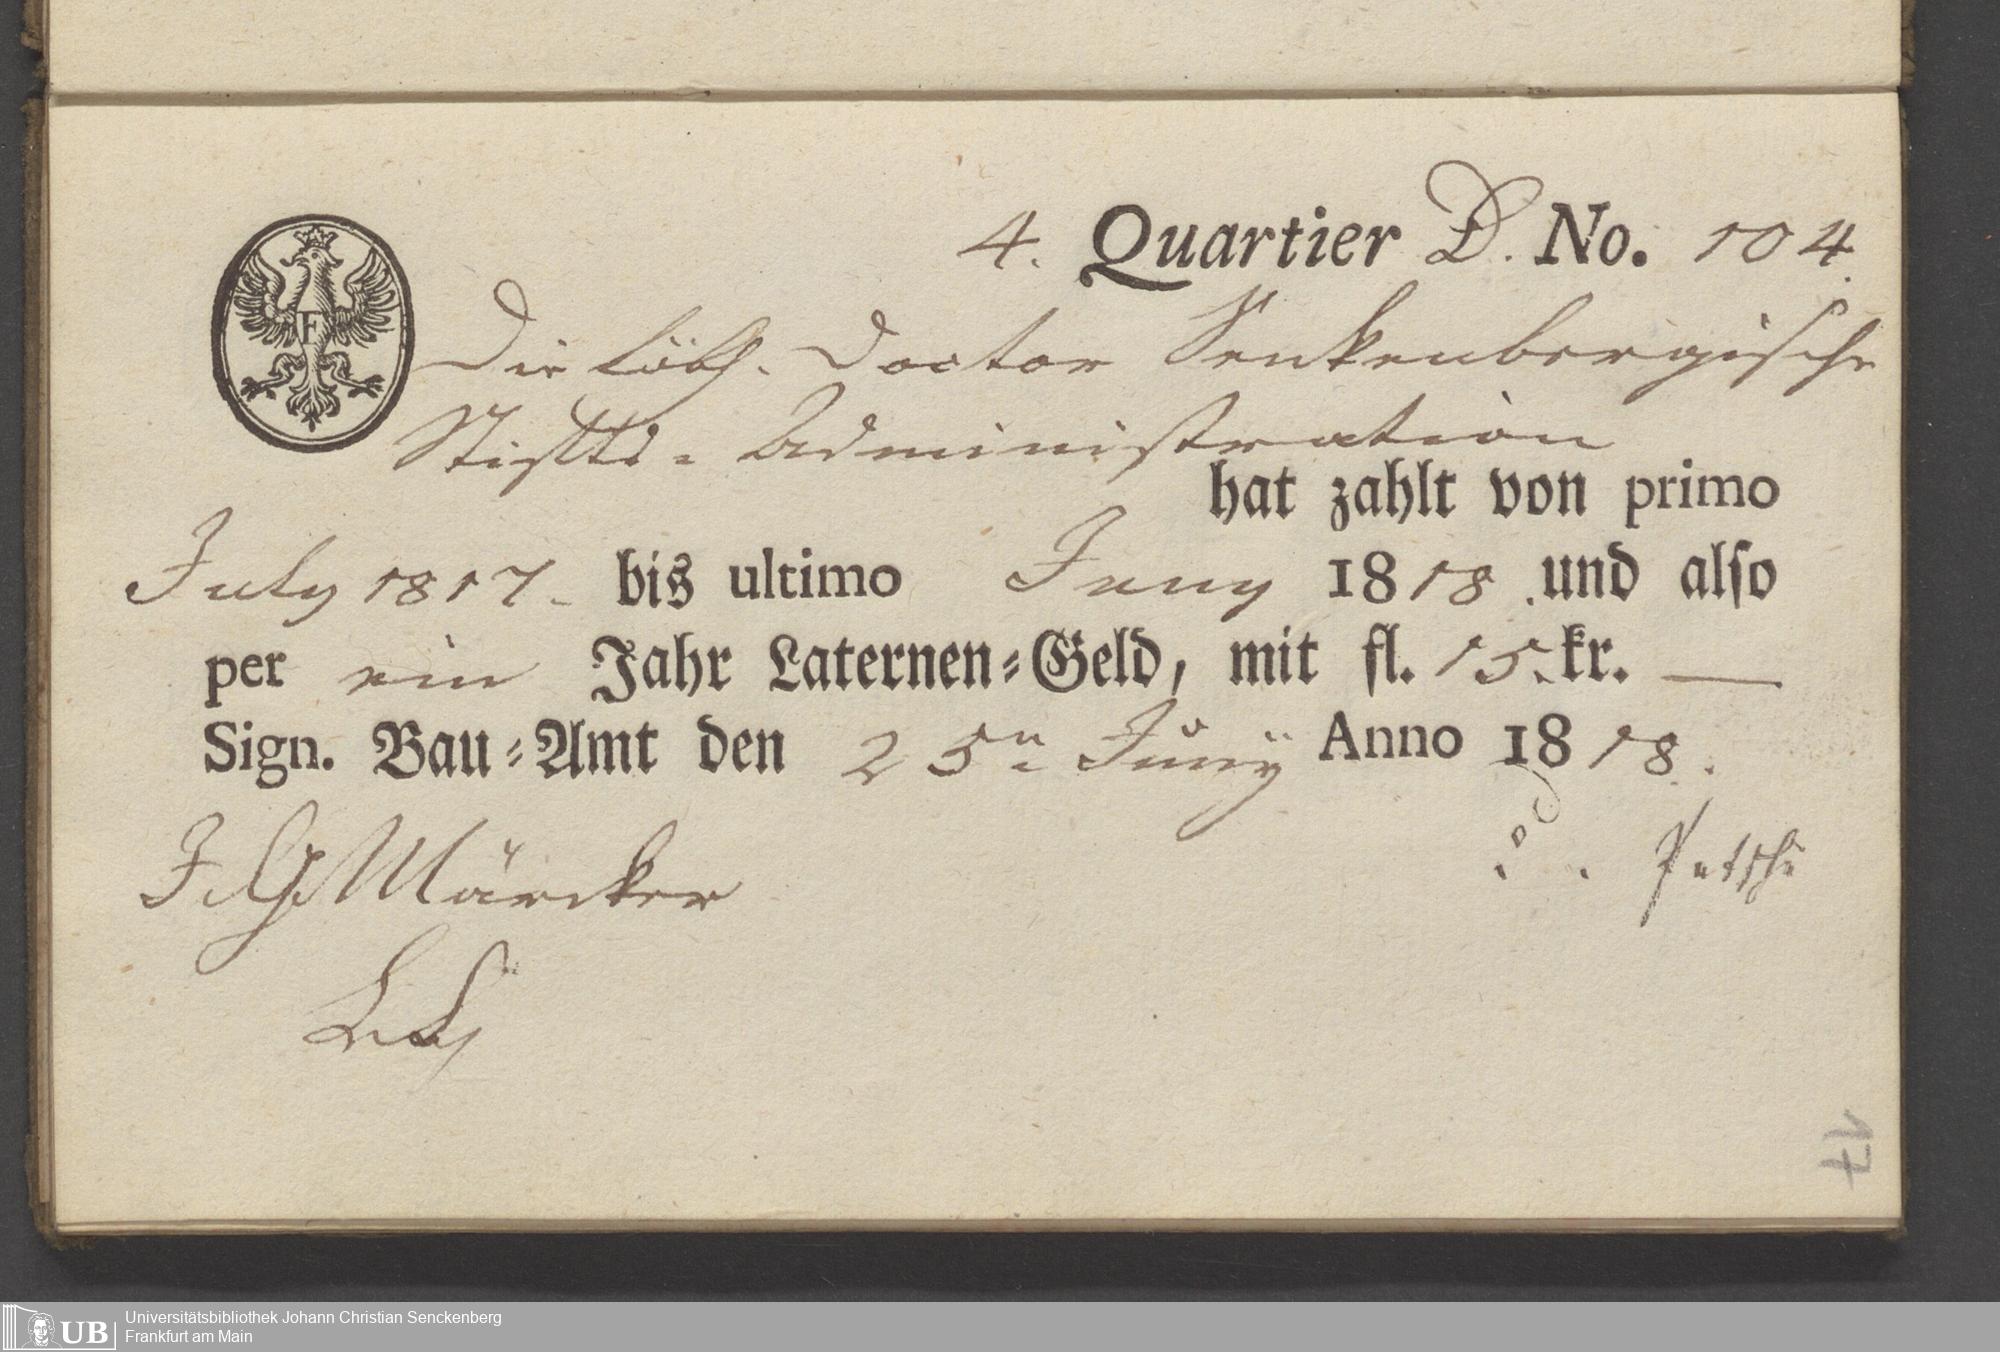 4. Quartier D. No. 104.
F
Die Löbl. Doctor Senkenbergische
Stiftts-Administration
hat zahlt von primo
July 1817. bis ultimo Juny 1818. und also
per ein Jahr Laternen-Geld, mit fl. 15. kr. —
Sign. Bau-Amt den 25n Juny Anno 1818.
J. G. Märcker
17
UB
Universitätsbibliothek Johann Christian Senckenberg
Frankfurt am Main